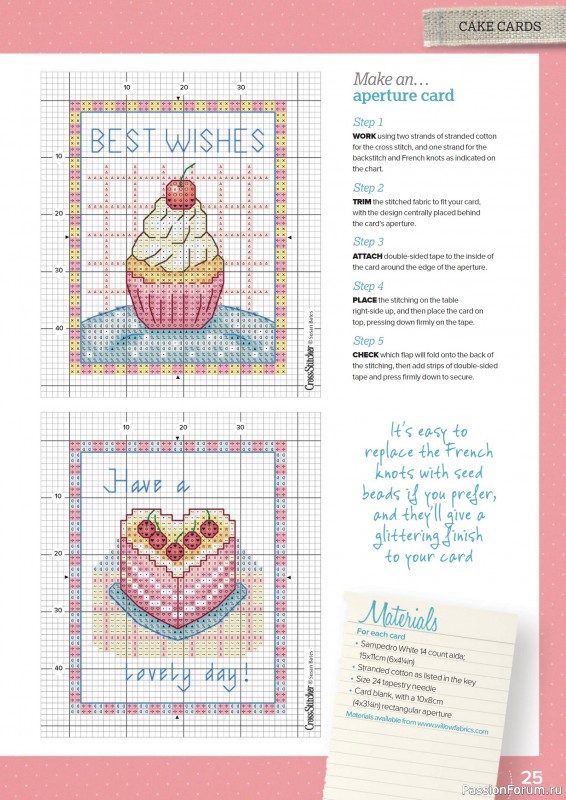 CAKE CARDS
10 20 30
10
20
30
40
BEST WISHES
CrossStitcher © Susan Bates
10 20 30
10
20
30
40
Have a
lovely day!
CrossStitcher © Susan Bates
Make an…
aperture card
Step 1
WORK using two strands of stranded cotton
for the cross stitch, and one strand for the
backstitch and French knots as indicated on
the chart.
Step 2
TRIM the stitched fabric to fit your card,
with the design centrally placed behind
the card's aperture.
Step 3
ATTACH double-sided tape to the inside of
the card around the edge of the aperture.
Step 4
PLACE the stitching on the table
right-side up, and then place the card on
top, pressing down firmly on the tape.
Step 5
CHECK which flap will fold onto the back of
the stitching, then add strips of double-sided
tape and press firmly down to secure.
It's easy to
replace the French
knots with seed
beads if you prefer,
and they'll give a
glittering finish
to your card
Materials
For each card
• Sampedro White 14 count aida;
15x11cm (6x4¼in)
• Stranded cotton as listed in the key
• Size 24 tapestry needle
• Card blank, with a 10x8cm
(4x3¼in) rectangular aperture
Materials available from www.willowfabrics.com
25
PassionForum.ru